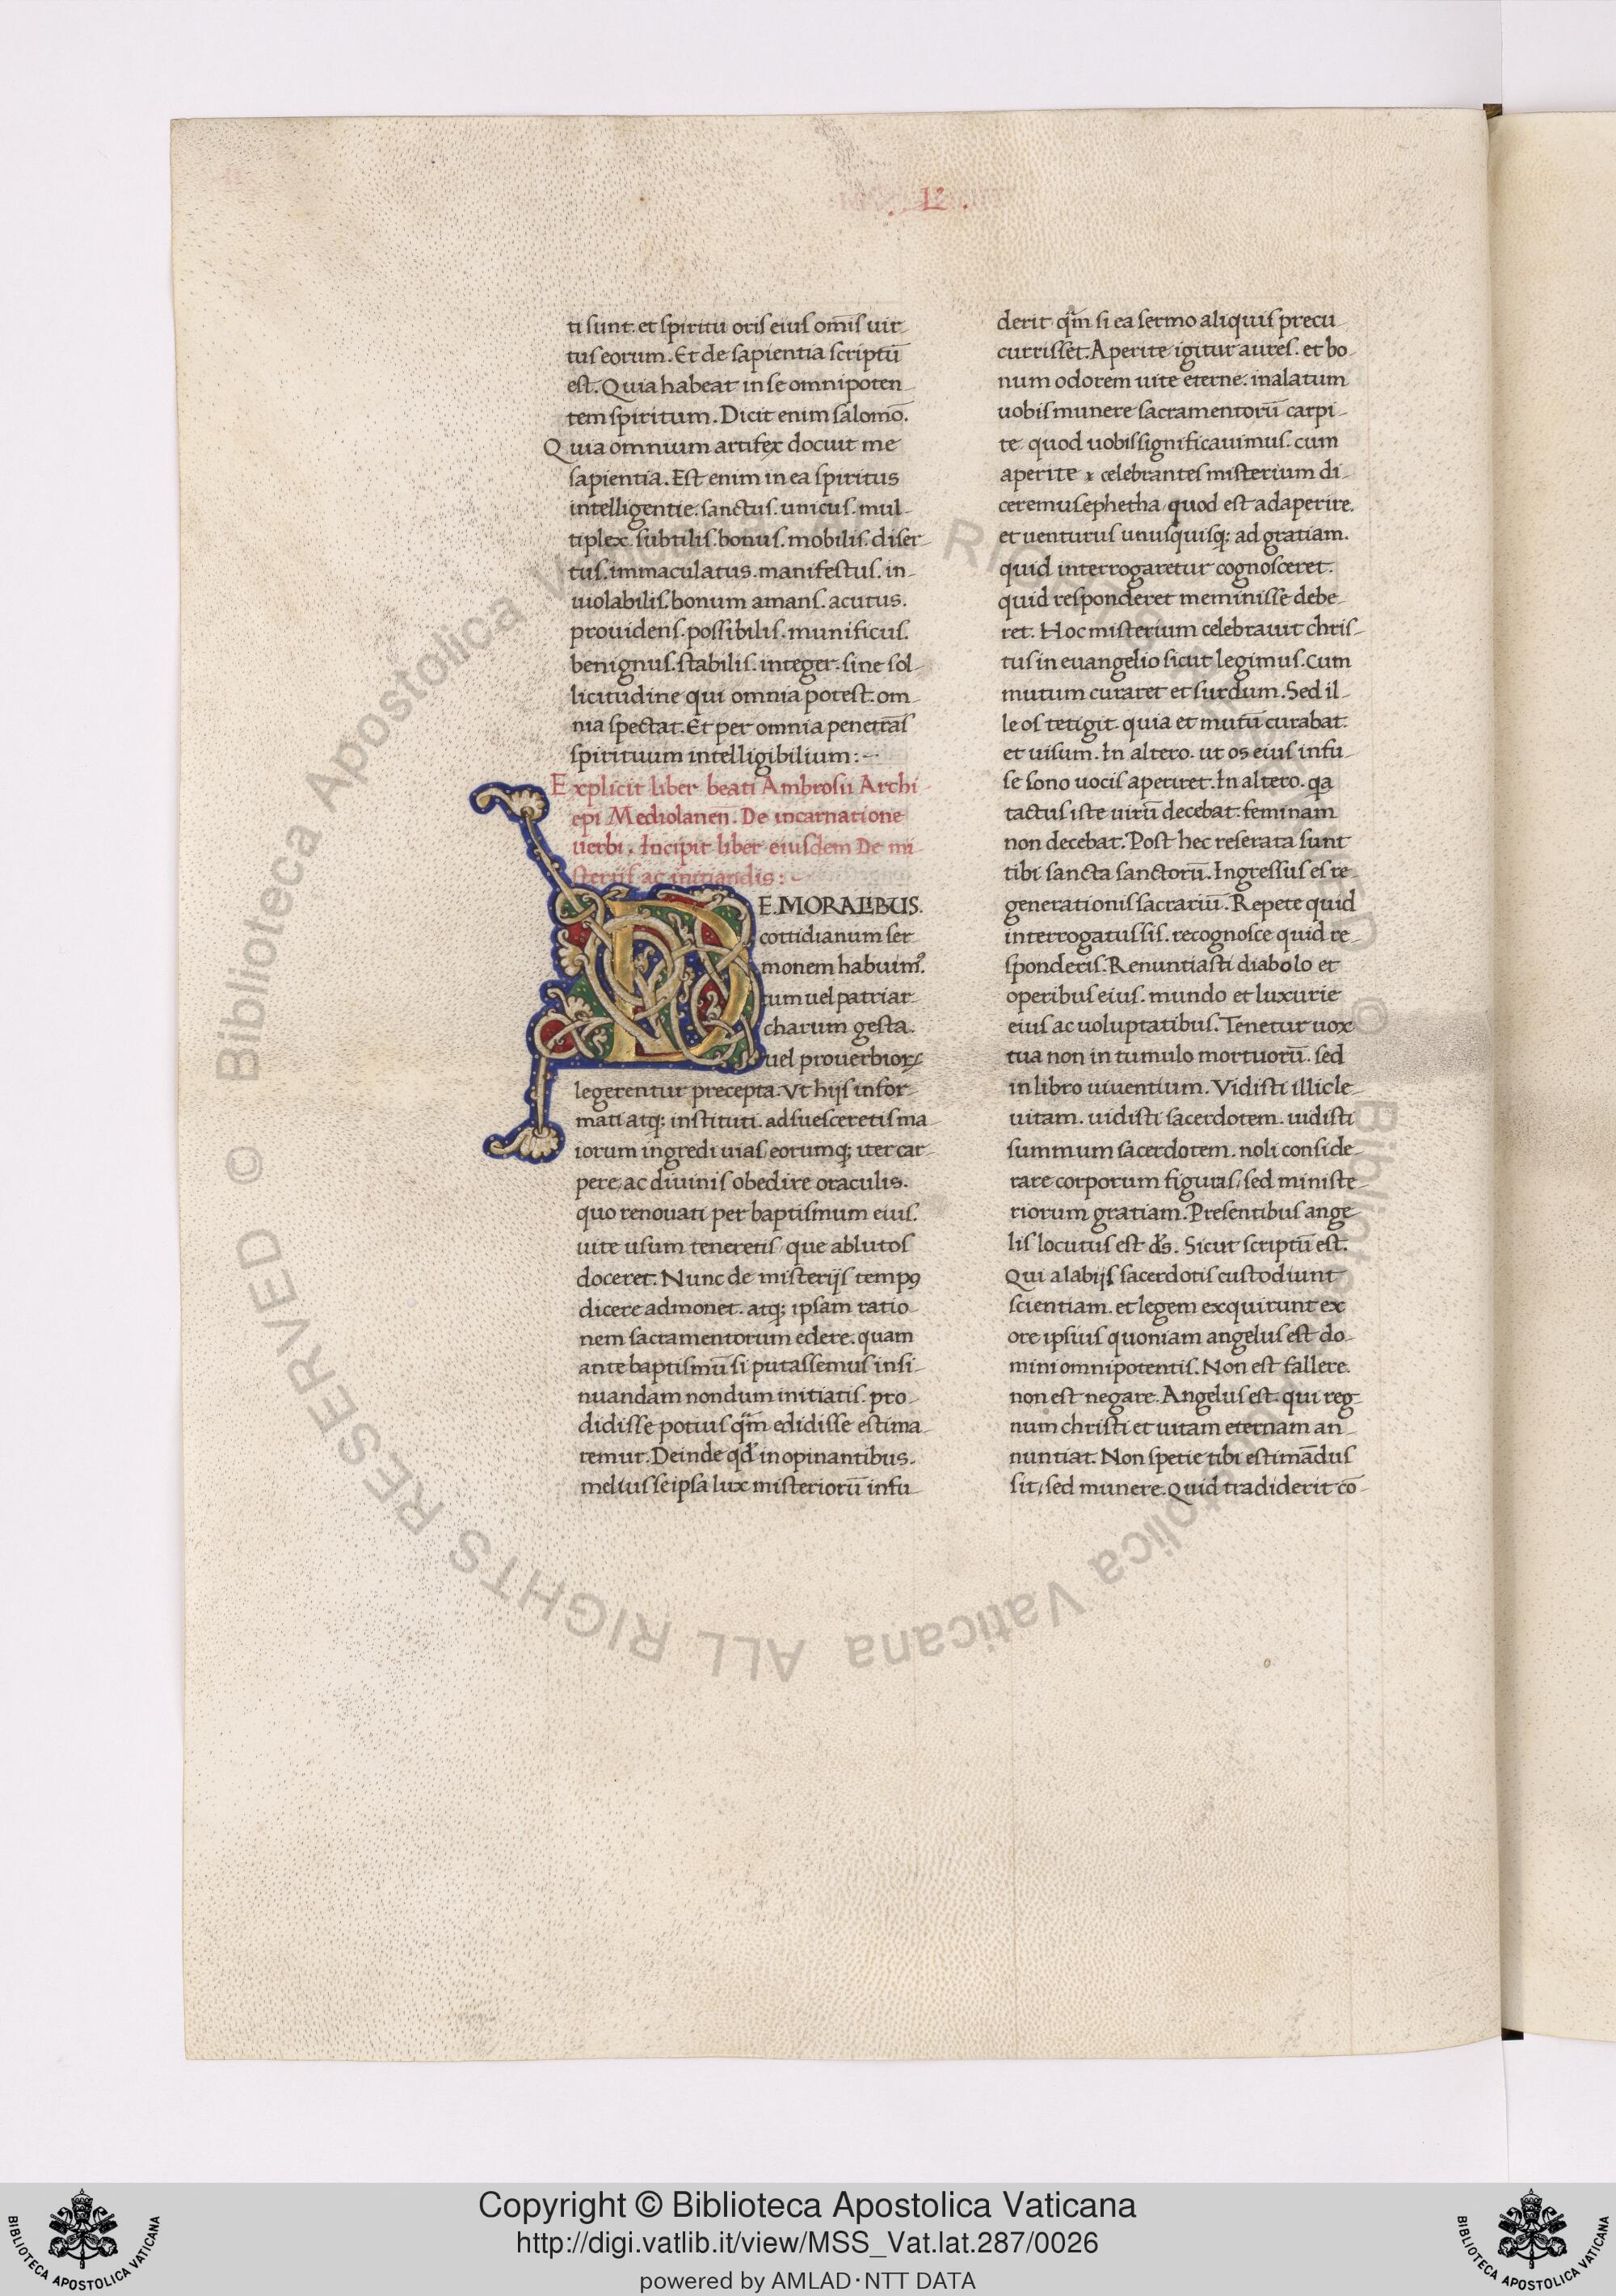 .L°.
ti sunt. et spiritu oris eius om̅is uir-
tus eorum. Et de sapientia scriptu̅
est. Quia habeat in se omnipoten-
tem spiritum. Dicit enim salomo̅.
Quia omnium artifex docuit me
sapientia. Est enim in ea spiritus
intelligentie. sanctus. unicus. mul-
tiplex. subtilis. bonus. mobilis. diser-
tus. immaculatus. manifestus. in-
uiolabilis. bonum amans. acutus.
prouidens. possibilis. munificus.
benignus. stabilis. integer. sine sol-
licitudine qui omnia potest. om-
nia spectat. Et per omnia penetra̅s
spirituum intelligibilium:-
Explicit liber beati Ambrosii Archi-
epi Mediolanen̅. De incarnatione
uerbi. Incipit liber eiusdem De mi-
sterijs ac initiandis:-
DE. MORALIBUS.
cottidianum ser-
monem habuimꝰ.
cum uel patriar-
charum gesta.
uel prouerbioꝝ
legerentur precepta. Vt hijs infor-
mati atq; instituti. adsuesceretis ma-
iorum ingredi uias eorumq; iter car-
pere. ac diuinis obedire oraculis.
quo renouati per baptismum eius.
uite usum teneretis, que ablutos
doceret. Nunc de misterijs tempꝯ
dicere admonet. atq; ipsam ratio-
nem sacramentorum edere. quam
ante baptismu̅ si putassemus insi-
nuandam nondum initiatis. pro-
didisse potius qͣ̅m edidisse estima-
remur. Deinde qd̛ inopinantibus.
melius se ipsa lux misterioru̅ infu-
derit qͣ̅m si ea sermo aliquis precu-
currisset. Aperite igitur aures. et bo-
num odorem uite eterne. inalatum
uobis munere sacramentoru̅ carpi-
te. quod uobis significauimus. cum
aperite x celebrantes misterium di-
ceremus ephetha, quod est adaperire.
et uenturus unusquisq; ad gratiam.
quid interrogaretur cognosceret.
quid responderet meminisse debe-
ret. Hoc misterium celebrauit chris-
tus in euangelio sicut legimus. cum
mutum curaret et surdum. Sed il-
le os tetigit. quia et mutu̅ curabat.
et uisum. In altero. ut os eius infu-
se sono uocis aperiret. In altero. qa
tactus iste uiru̅ decebat. feminam
non decebat. Post hec reserata sunt
tibi sancta sanctoru̅. Ingressus es re-
generationis sacrariu̅. Repete quid
interrogatus sis. recognosce quid re-
sponderis. Renuntiasti diabolo et
operibus eius. mundo et luxurie
eius ac uoluptatibus. Tenetur uox
tua non in tumulo mortuoru̅. sed
in libro uiuentium. Vidisti illic le-
uitam. uidisti sacerdotem. uidisti
summum sacerdotem. noli conside-
rare corporum figuras, sed ministe-
riorum gratiam. Presentibus ange-
lis locutus est d̅s. Sicut scriptu̅ est.
Qui a labijs sacerdotis custodiunt
scientiam. et legem exquirunt ex
ore ipsius quoniam angelus est do-
mini omnipotentis. Non est fallere.
non est negare. Angelus est. qui reg-
num christi et uitam eternam an-
nuntiat. Non spetie tibi estima̅dus
sit, sed munere. Quid tradiderit co̅-
© Biblioteca Apostolica Vaticana ALL RIGHTS RESERVED © Biblioteca Apostolica Vaticana ALL RIGHTS RESERVED
Copyright © Biblioteca Apostolica Vaticana
http://digi.vatlib.it/view/MSS_Vat.lat.287/0026
powered by AMLAD·NTT DATA
BIBLIOTECA APOSTOLICA VATICANA
BIBLIOTECA APOSTOLICA VATICANA